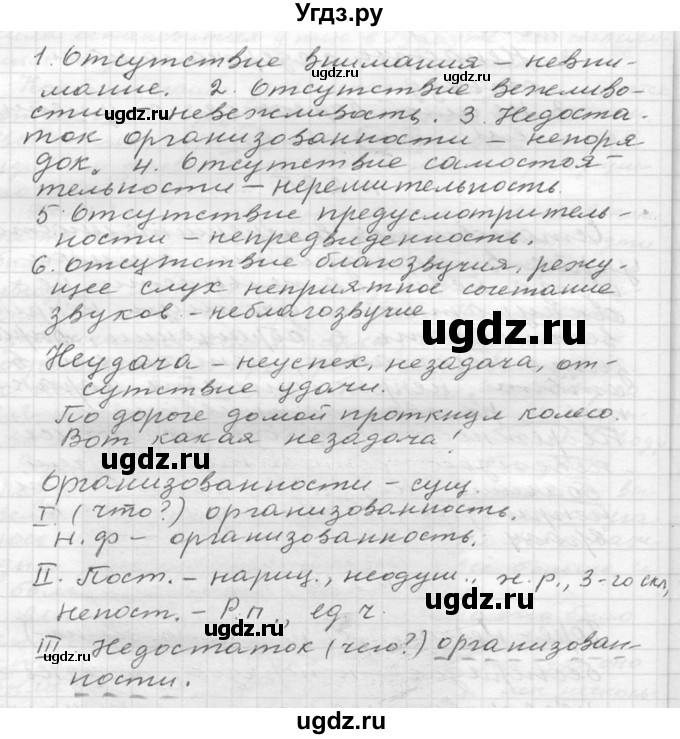 Угдз.ру
1. Отсутствие внимания – невни-
мание. 2. Отсутствие вежливо-
сти – невежливость. 3. Недоста-
ток организованности – непоря
док. 4. Отсутствие самостоя-
тельности – нерешительность.
5. Отсутствие предусмотритель-
ности – непредвиденность.
6. Отсутствие благозвучия, режу-
щее слух неприятное сочетание
звуков – неблагозвучие.
ugdz.ru
Неудача – неуспех, незадача, от-
сутствие удачи.
По дороге домой проткнул колесо.
Вот какая незадача!
ugdz.ru
Организованности – сущ.
I. (что?) организованность.
н.ф – организованность.
II. Пост. – нариц., неодуш., ж.р., 3-го скл,
непост. – Р.п., ед ч.
III. Недостаток (чего?) организован-
ности.
ugdz.ru